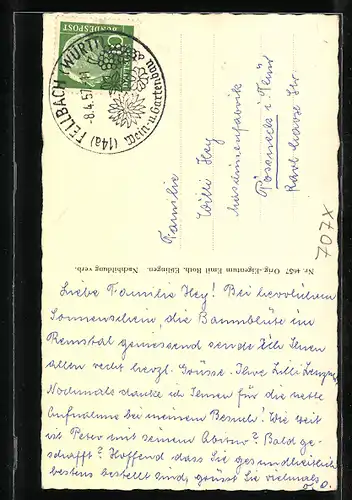 DEUTSCHE BUNDESPOST
(14a) FELLBACH (WÜRTT)
-8.4.5
Wein- u. Gartenbau
Familie
Willi Hey
Maschinenfabrik
Pössneck i. Thür
Karl Marx Str.
707X
Nr. 4657 Orig.-Eigentum Emil Roth, Eßlingen. Nachbildung verb.
Liebe Familie Hey! Bei herrlichem
Sonnenschein, die Baumblüte im
Remstal geniessend sende ich Ihnen
allen recht herzl. Grüsse. Ihre Lilli
Nochmals danke ich Ihnen für die nette
Aufnahme bei meinem Besuch! Wie weit
ist Peter mit seinem Abitur? Bald ge-
schafft? Hoffend dass Sie gesundheitlich
bestens bestellt sind, grüsst Sie vielmals